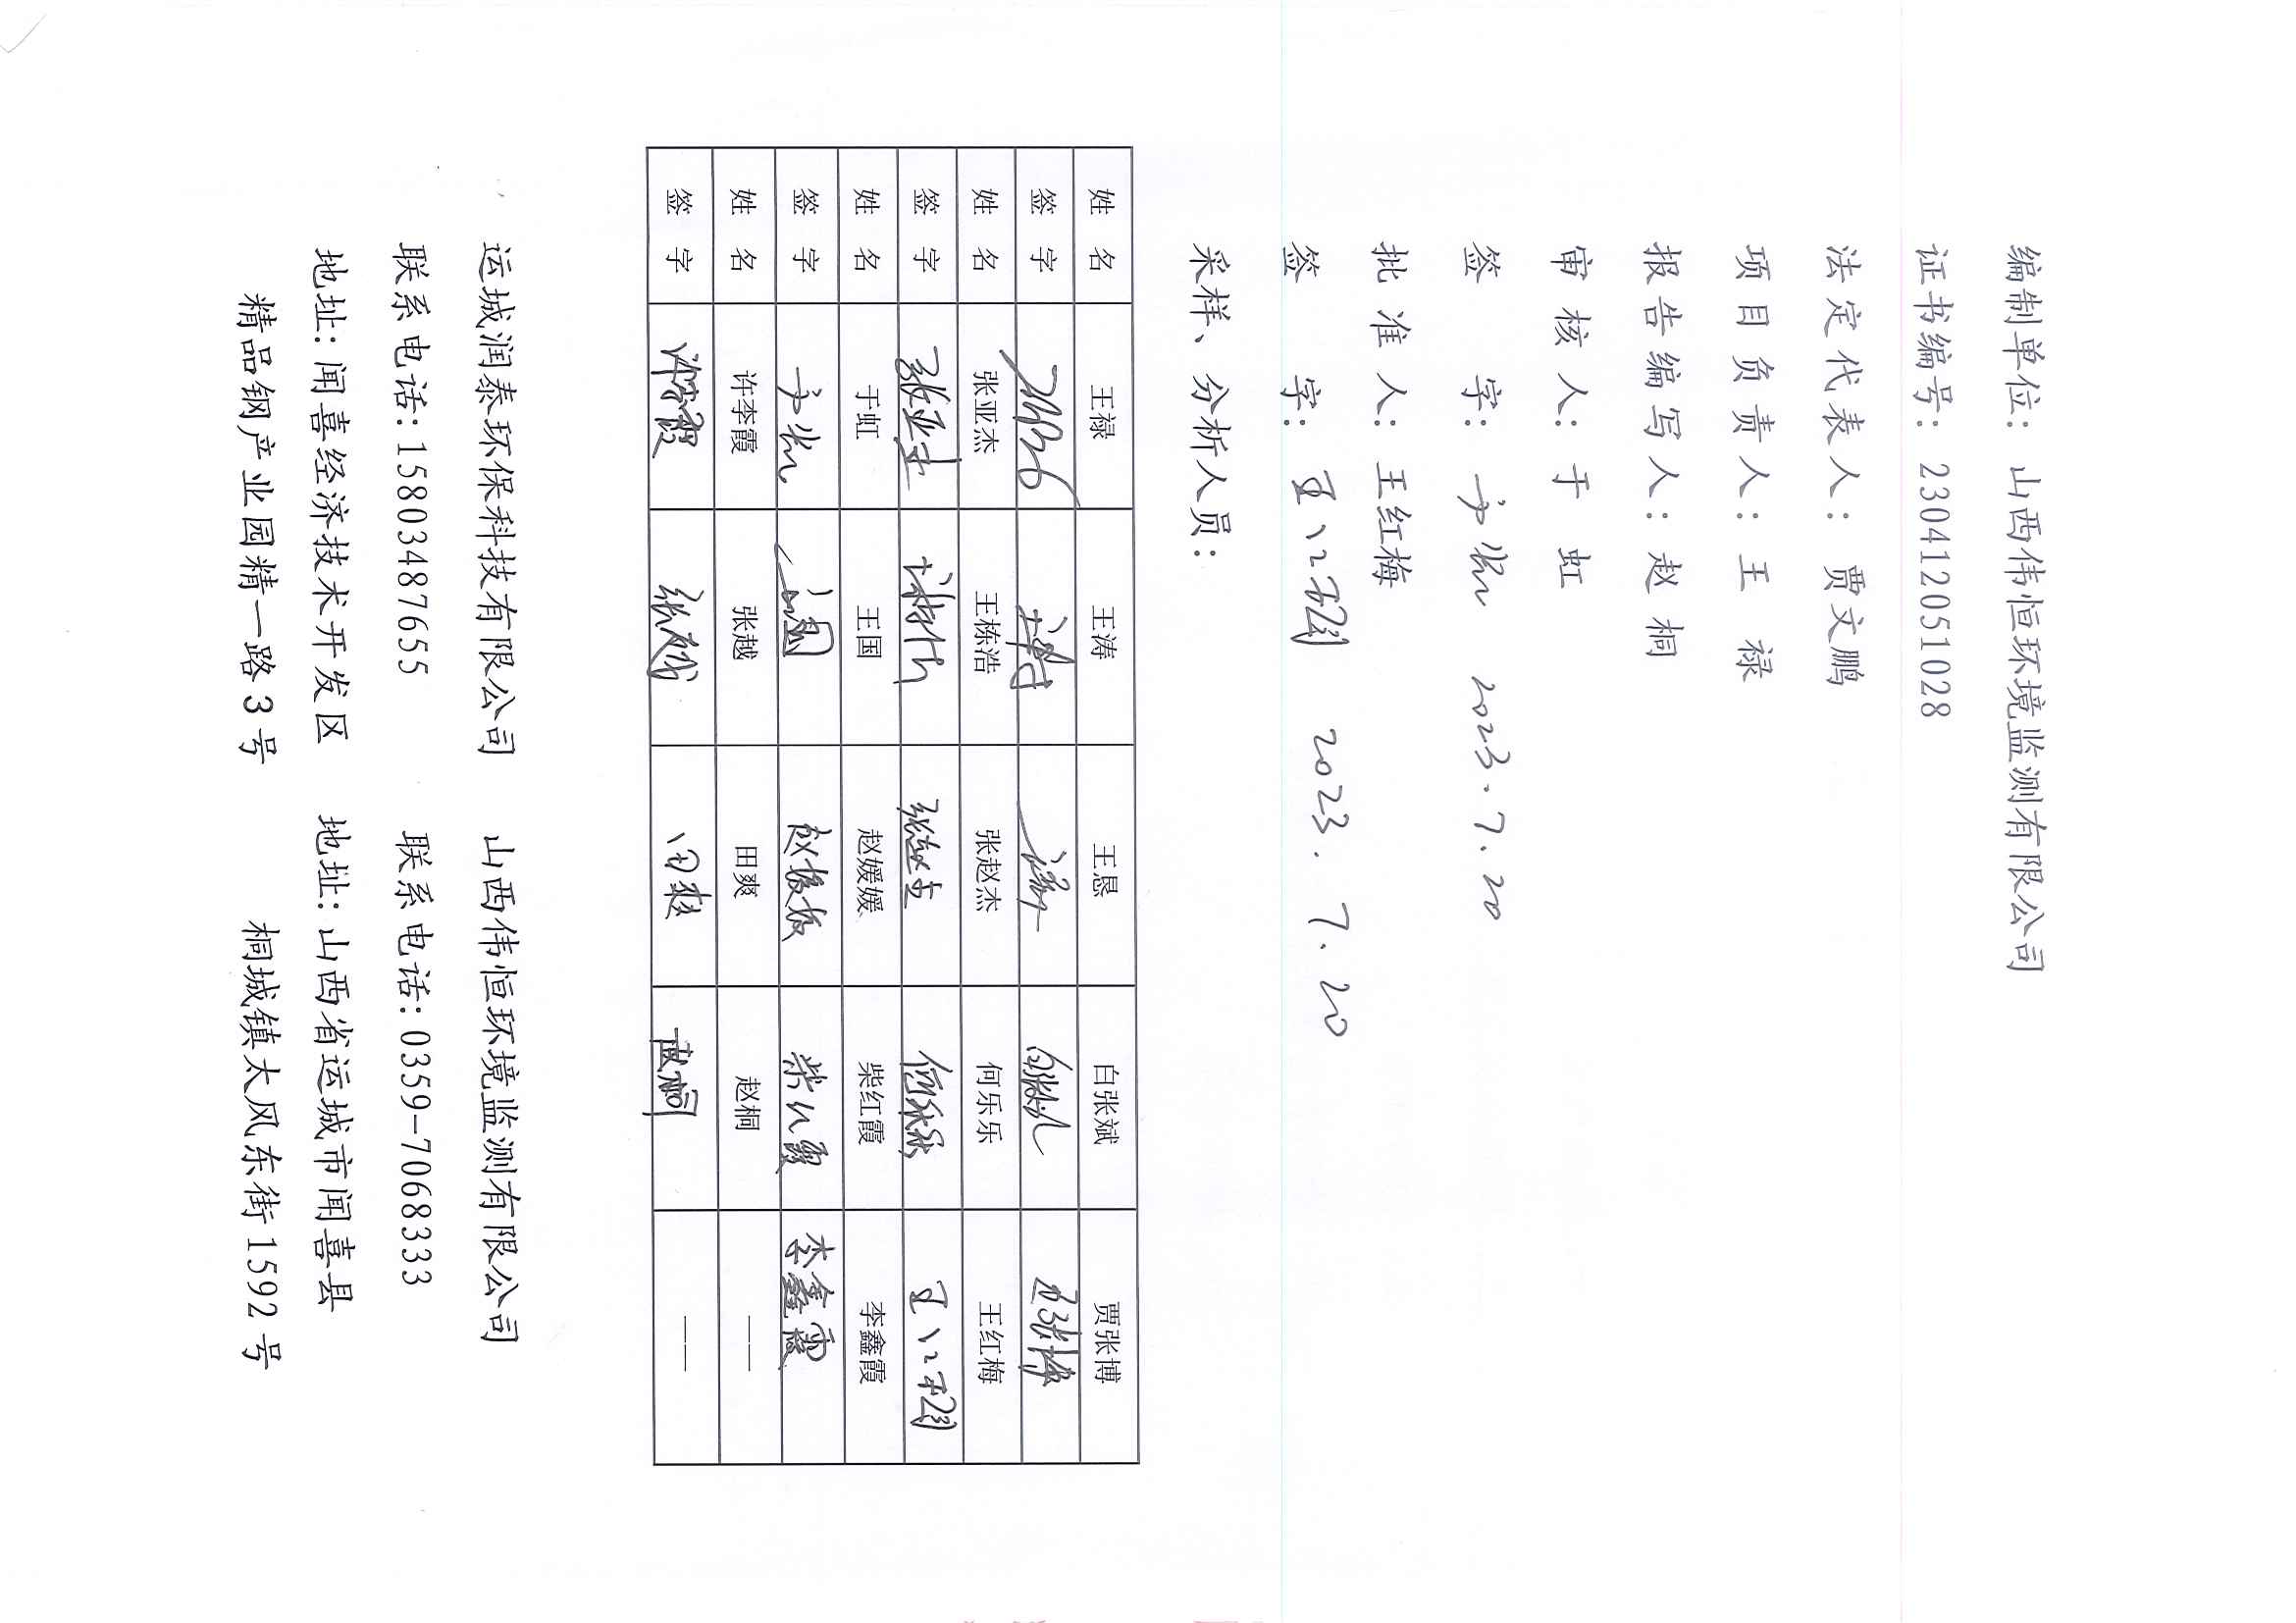 编制单位：山西伟恒环境监测有限公司
证书编号：230412051028
法定代表人：贾文鹏
项目负责人：王 禄
报告编写人：赵 桐
审核人：于 虹
签 字：于虹 2023.7.20
批准人：王红梅
签 字：王红梅 2023.7.20
采样、分析人员：
姓 名 王禄 王涛 王恳 白张斌 贾张博
签 字
姓 名 张亚杰 王栋浩 张赵杰 何乐乐 王红梅
签 字 张亚杰 张赵杰 何乐乐 王红梅
姓 名 于虹 王国 赵媛媛 柴红霞 李鑫霞
签 字 于虹 王国 赵媛媛 柴红霞 李鑫霞
姓 名 许李霞 张越 田爽 赵桐 ——
签 字 许李霞 张越 田爽 赵桐 ——
运城润泰环保科技有限公司 山西伟恒环境监测有限公司
联系电话:15803487655 联系电话:0359-7068333
地址:闻喜经济技术开发区 地址:山西省运城市闻喜县
精品钢产业园精一路3号 桐城镇太风东街1592号